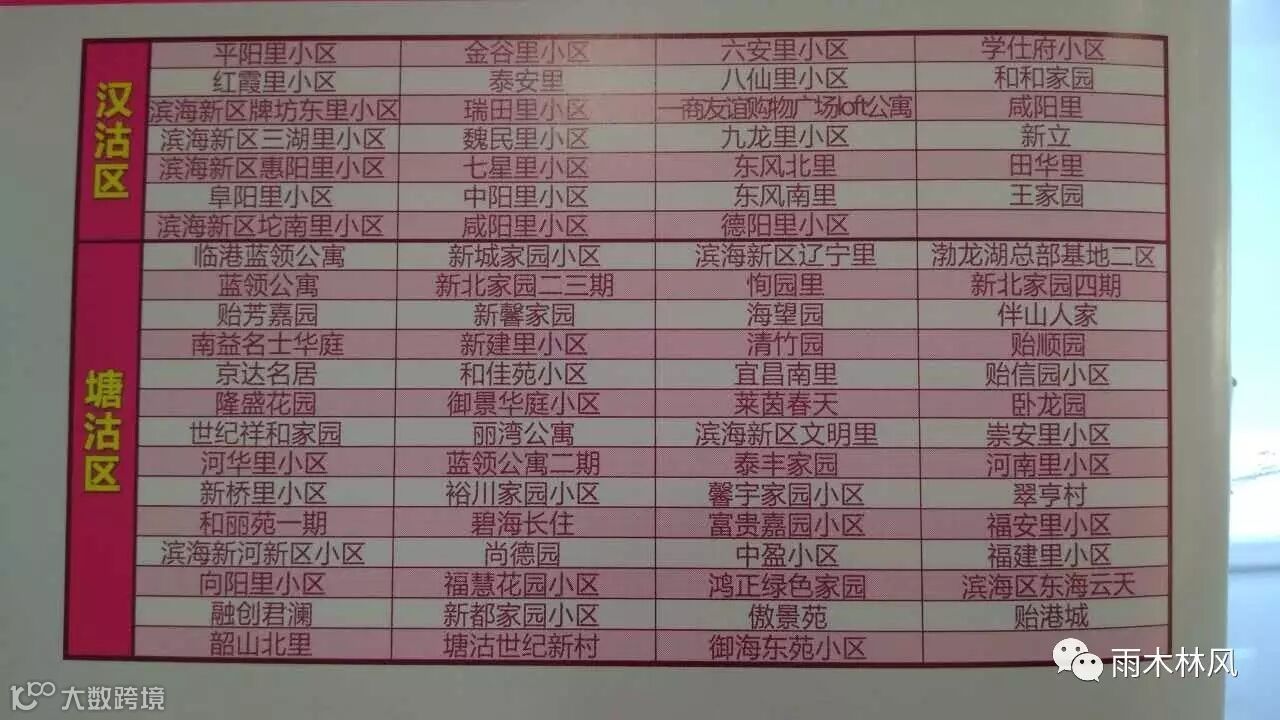 汉沽区
平阳里小区 金谷里小区 六安里小区 学仕府小区
红霞里小区 泰安里 八仙里小区 和和家园
滨海新区牌坊东里小区 瑞田里小区 一商友谊购物广场loft公寓 咸阳里
滨海新区三湖里小区 魏民里小区 九龙里小区 新立
滨海新区惠阳里小区 七星里小区 东风北里 田华里
阜阳里小区 中阳里小区 东风南里 王家园
滨海新区坨南里小区 咸阳里小区 德阳里小区
塘沽区
临港蓝领公寓 新城家园小区 滨海新区辽宁里 渤龙湖总部基地二区
蓝领公寓 新北家园二三期 恂园里 新北家园四期
贻芳嘉园 新馨家园 海望园 伴山人家
南益名士华庭 新建里小区 清竹园 贻顺园
京达名居 和佳苑小区 宜昌南里 贻信园小区
隆盛花园 御景华庭小区 莱茵春天 卧龙园
世纪祥和家园 丽湾公寓 滨海新区文明里 崇安里小区
河华里小区 蓝领公寓二期 泰丰家园 河南里小区
新桥里小区 裕川家园小区 馨宇家园小区 翠亨村
和丽苑一期 碧海长住 富贵嘉园小区 福安里小区
滨海新河新区小区 尚德园 中盈小区 福建里小区
向阳里小区 福慧花园小区 鸿正绿色家园 滨海区东海云天
融创君澜 新都家园小区 傲景苑 贻港城
韶山北里 塘沽世纪新村 御海东苑小区
雨木林风
大数跨境